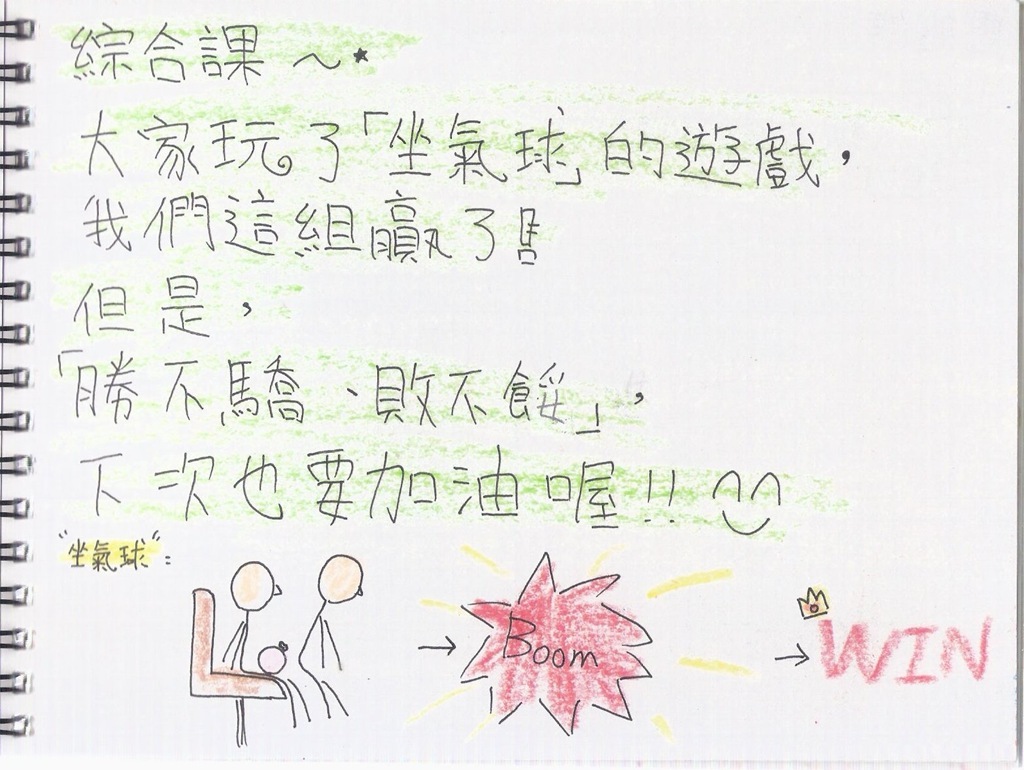 綜合課～★
大家玩了「坐氣球」的遊戲，
我們這組贏了!!
但是，
「勝不驕、敗不餒」，
下次也要加油喔!!
"坐氣球"：
Boom
WIN